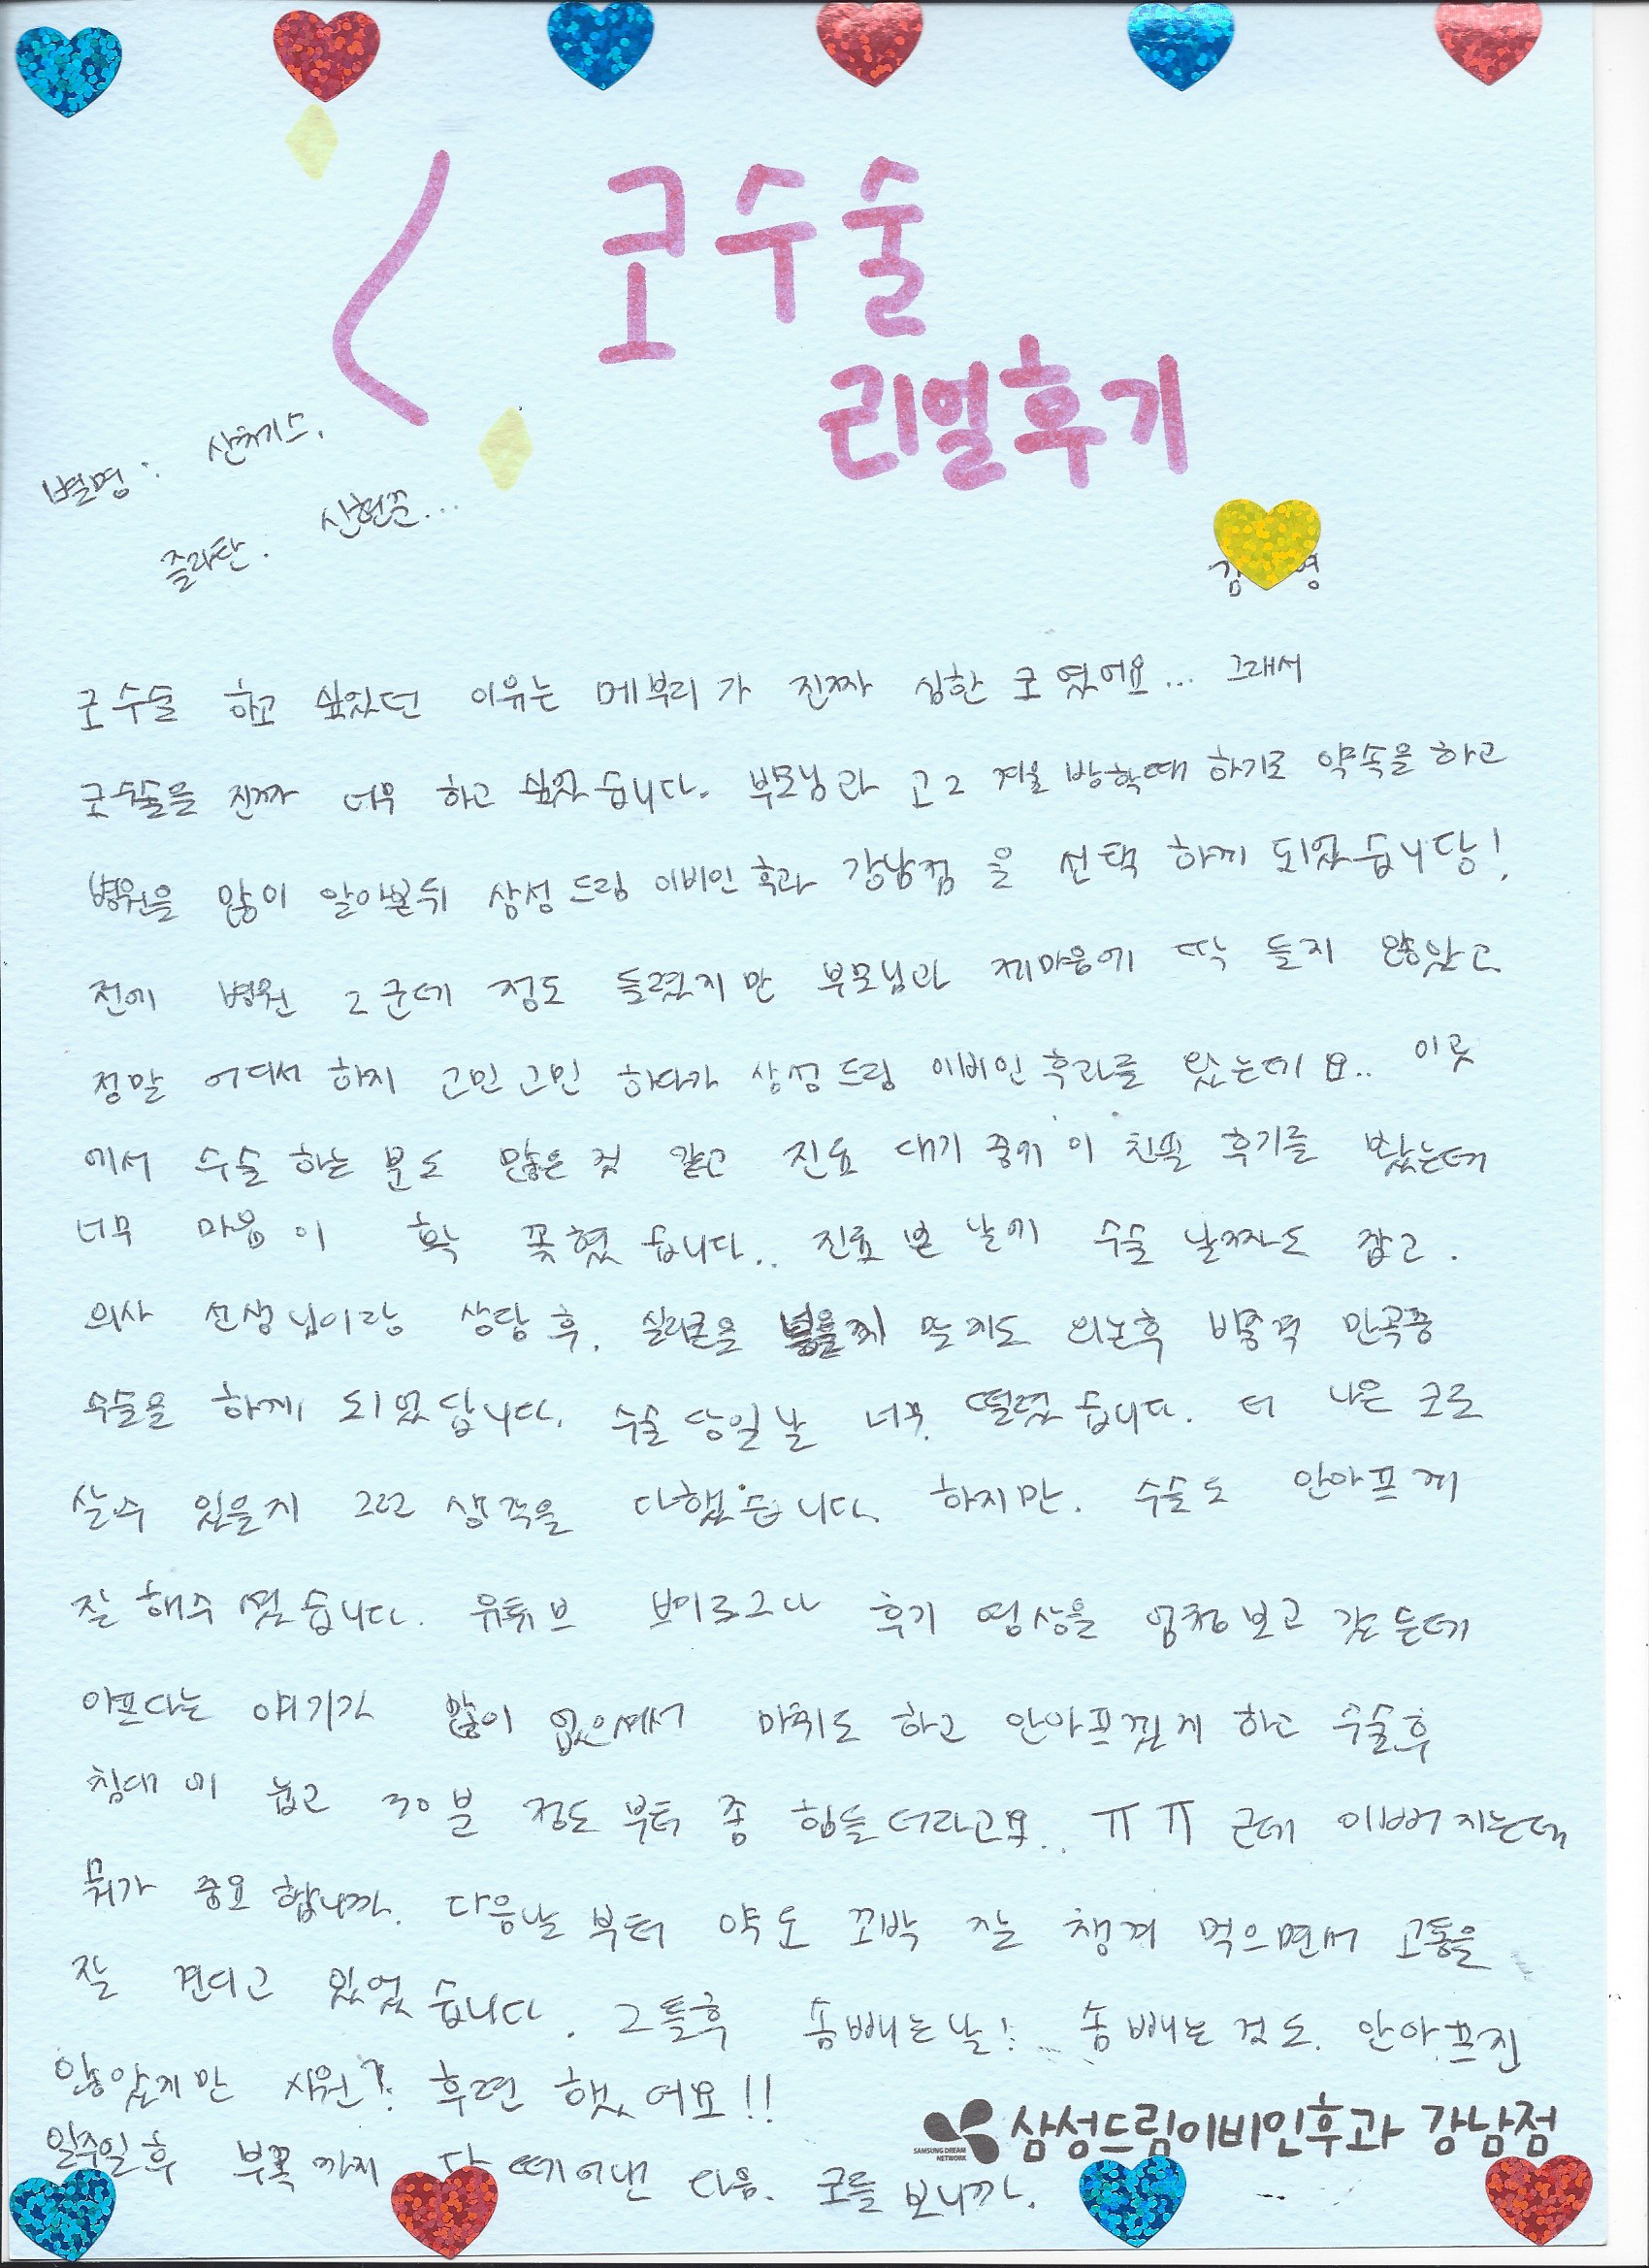 코수술
리얼후기
별명: 산체스.
즐라탄.
김 영
코수술 하고 싶었던 이유는 메부리가 진짜 심한 코 였어요... 그래서
코수술을 진짜 너무 하고 싶었습니다. 부모님과 고2 겨울 방학때 하기로 약속을 하고
병원을 많이 알아본뒤 삼성드림 이비인후과 강남점을 선택 하게 되었습니당!
전에 병원 2군데 정도 들렸지만 부모님과 제마음에 딱 들지 않았고
정말 어디서 하지 고민고민 하다가 삼성드림 이비인후과를 왔는데요.. 이곳
에서 수술 하는 분도 많은것 같고 진료 대기 중에 이 친필 후기를 봤는데
너무 마음이 확 꽂혔습니다.. 진료 본 날에 수술 날짜도 잡고.
의사 선생님이랑 상담 후. 실리콘을 넣을찌 말지도 의논후 비중격 만곡증
수술을 하게 되었답니다. 수술 당일날 너무 떨렸습니다. 더 나은 코로
살수 있을지 그리고 생각을 다했습니다. 하지만. 수술도 안아프게
잘 해주셨습니다. 유튜브 브이로그나 후기 영상을 엄청보고 갔든데
아프다는 얘기가 많이 없으셔서 마취도 하고 안아프낍게 하고 수술후
침대에 눕고 30분 정도 부터 좀 힘들더라고요.. ㅠㅠ 근데 이뻐지는데
뭐가 중요합니까. 다음날 부터 약도 꼬박 잘 챙겨 먹으면서 고통을
잘 견디고 있었습니다. 그틀후 솜빼는날! 솜 빼는것도. 안아프진
않았지만 시원? 후련 했어요!!
일주일후 부목까지 다 떼어낸 다음. 코를 보니까.
SAMSUNG DREAM
NETWORK
삼성드림이비인후과 강남점